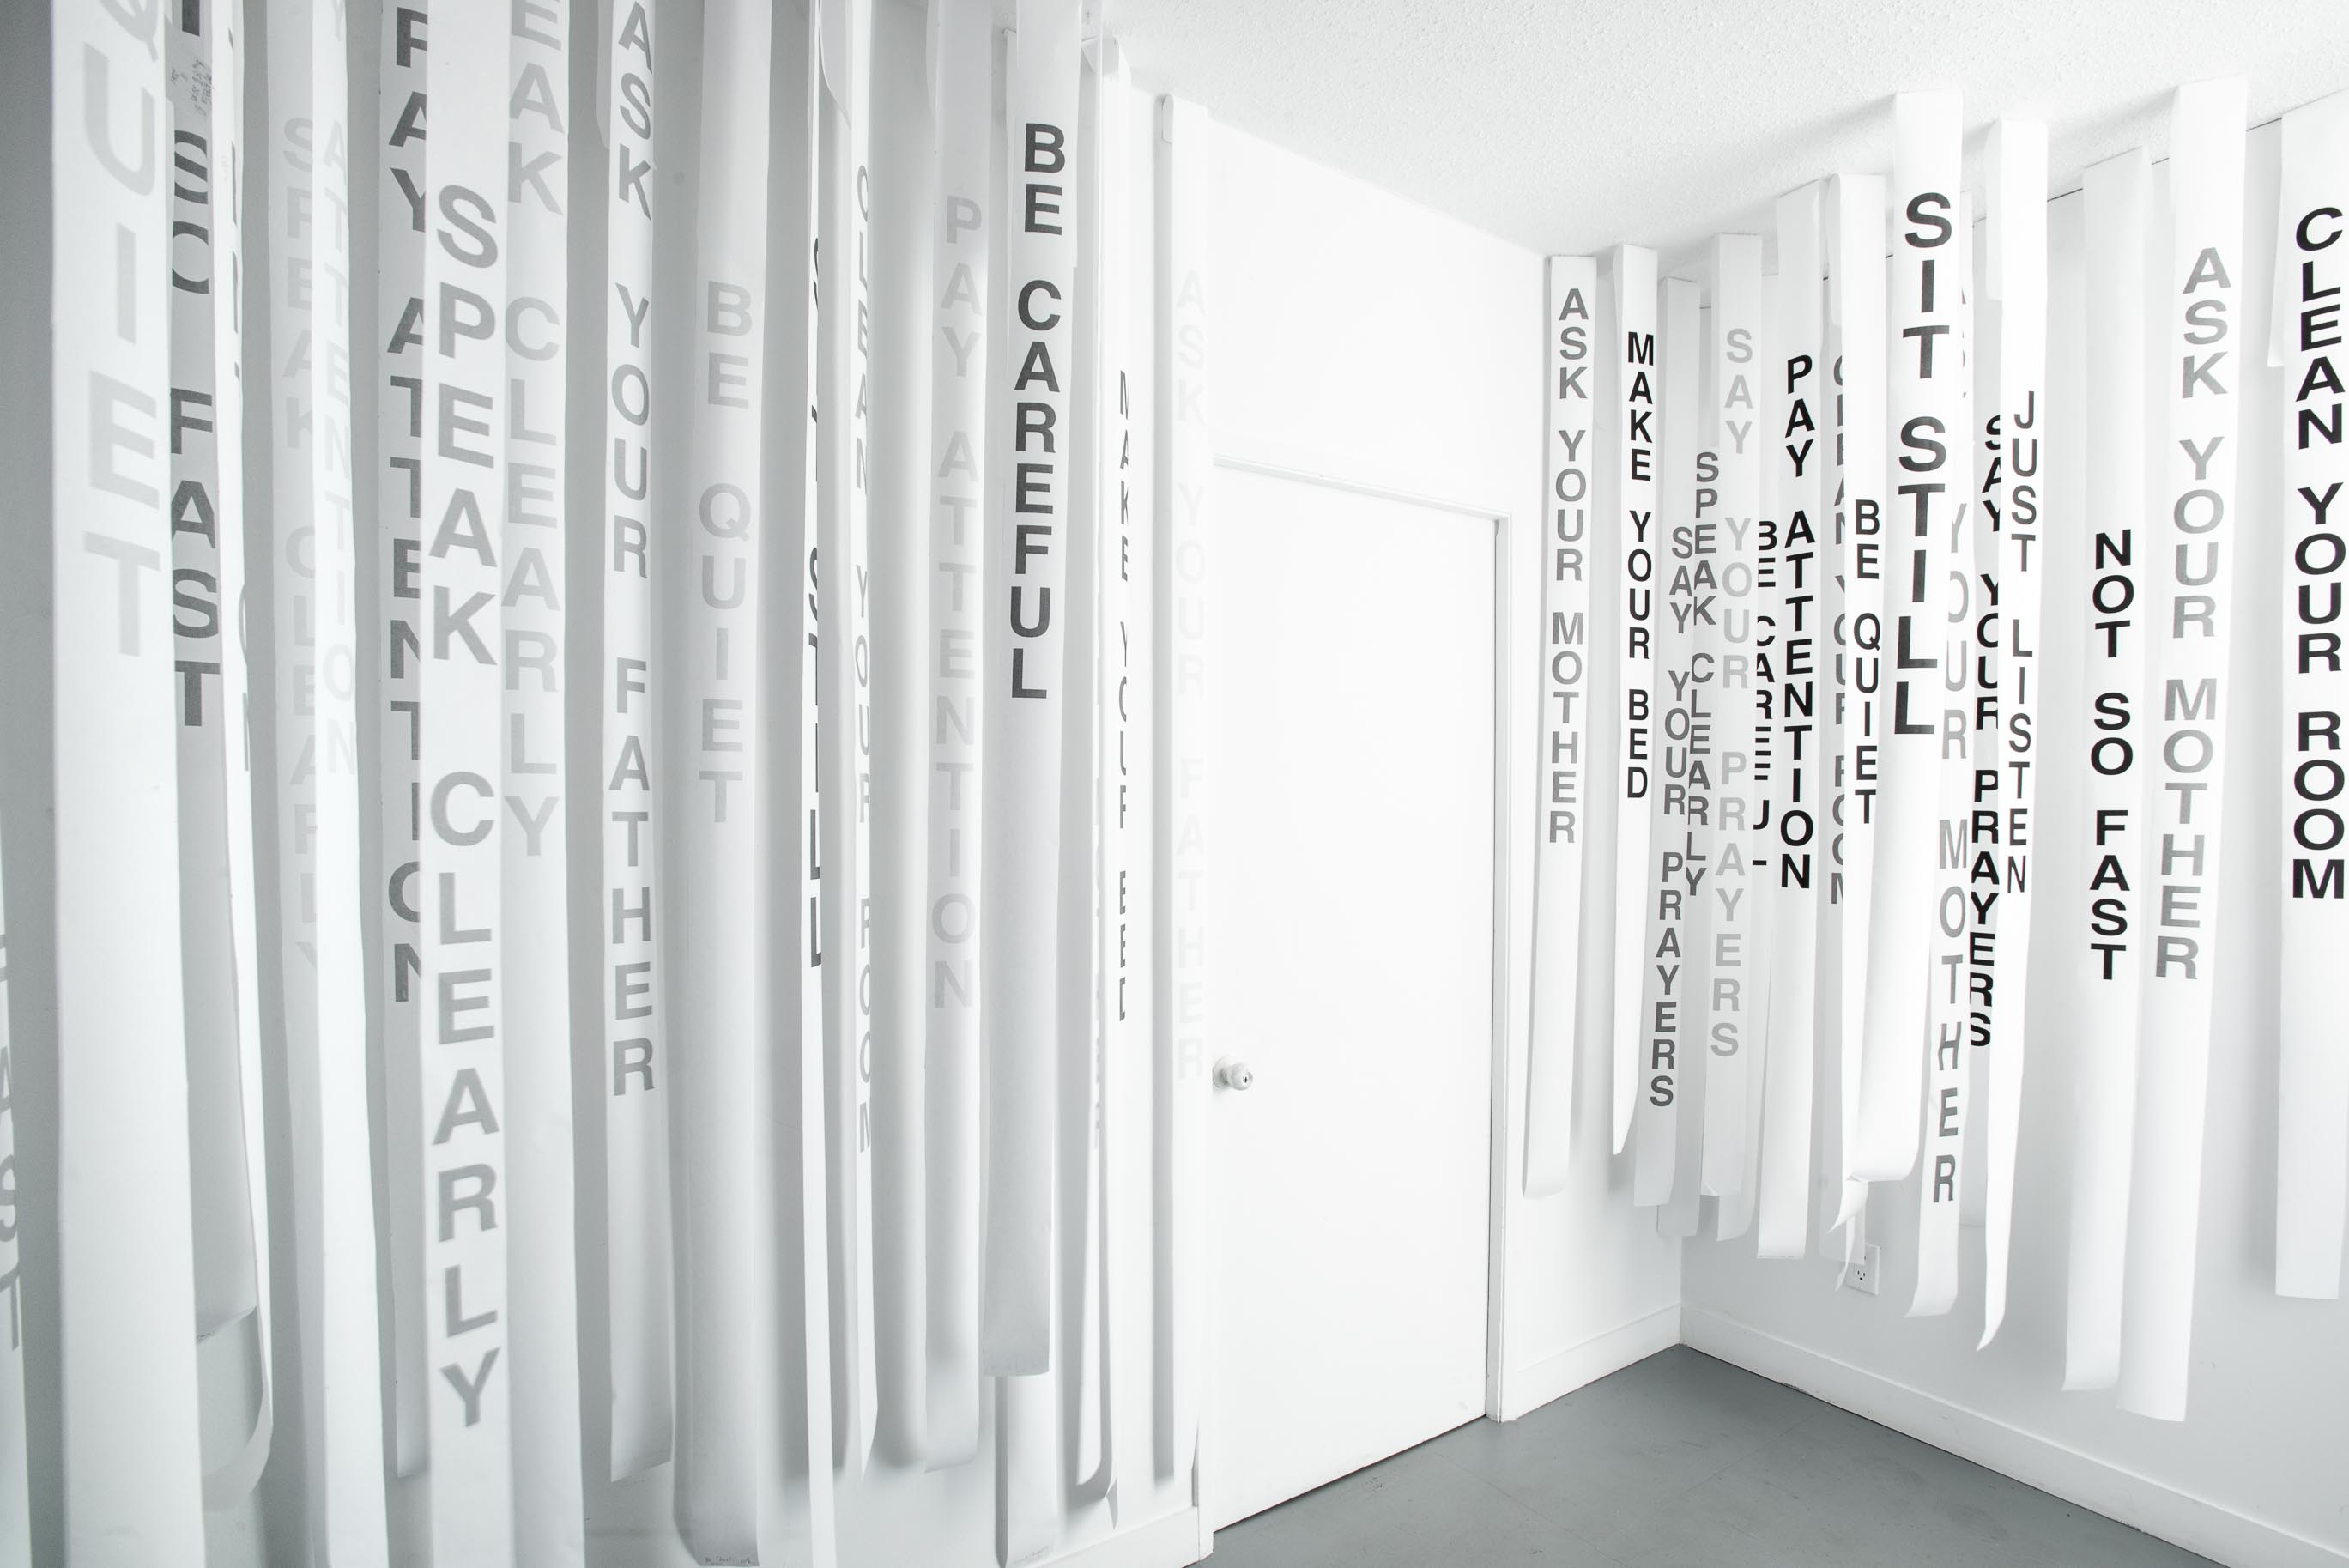 QUIET
SO FAST
SPEAK CLEARLY
ATTENTION
PAY ATTENTION
SPEAK CLEARLY
EAK CLEARLY
ASK YOUR FATHER
BE QUIET
CLEAN YOUR ROOM
PAY ATTENTION
BE CAREFUL
MAKE YOUR BED
ASK YOUR FATHER
ASK YOUR MOTHER
MAKE YOUR BED
SAY YOUR PRAYERS
SPEAK CLEARLY
SAY YOUR PRAYERS
BE CAREFUL
PAY ATTENTION
CLEAN YOUR ROOM
BE QUIET
SIT STILL
YOUR MOTHER
SAY YOUR PRAYERS
JUST LISTEN
NOT SO FAST
ASK YOUR MOTHER
CLEAN YOUR ROOM